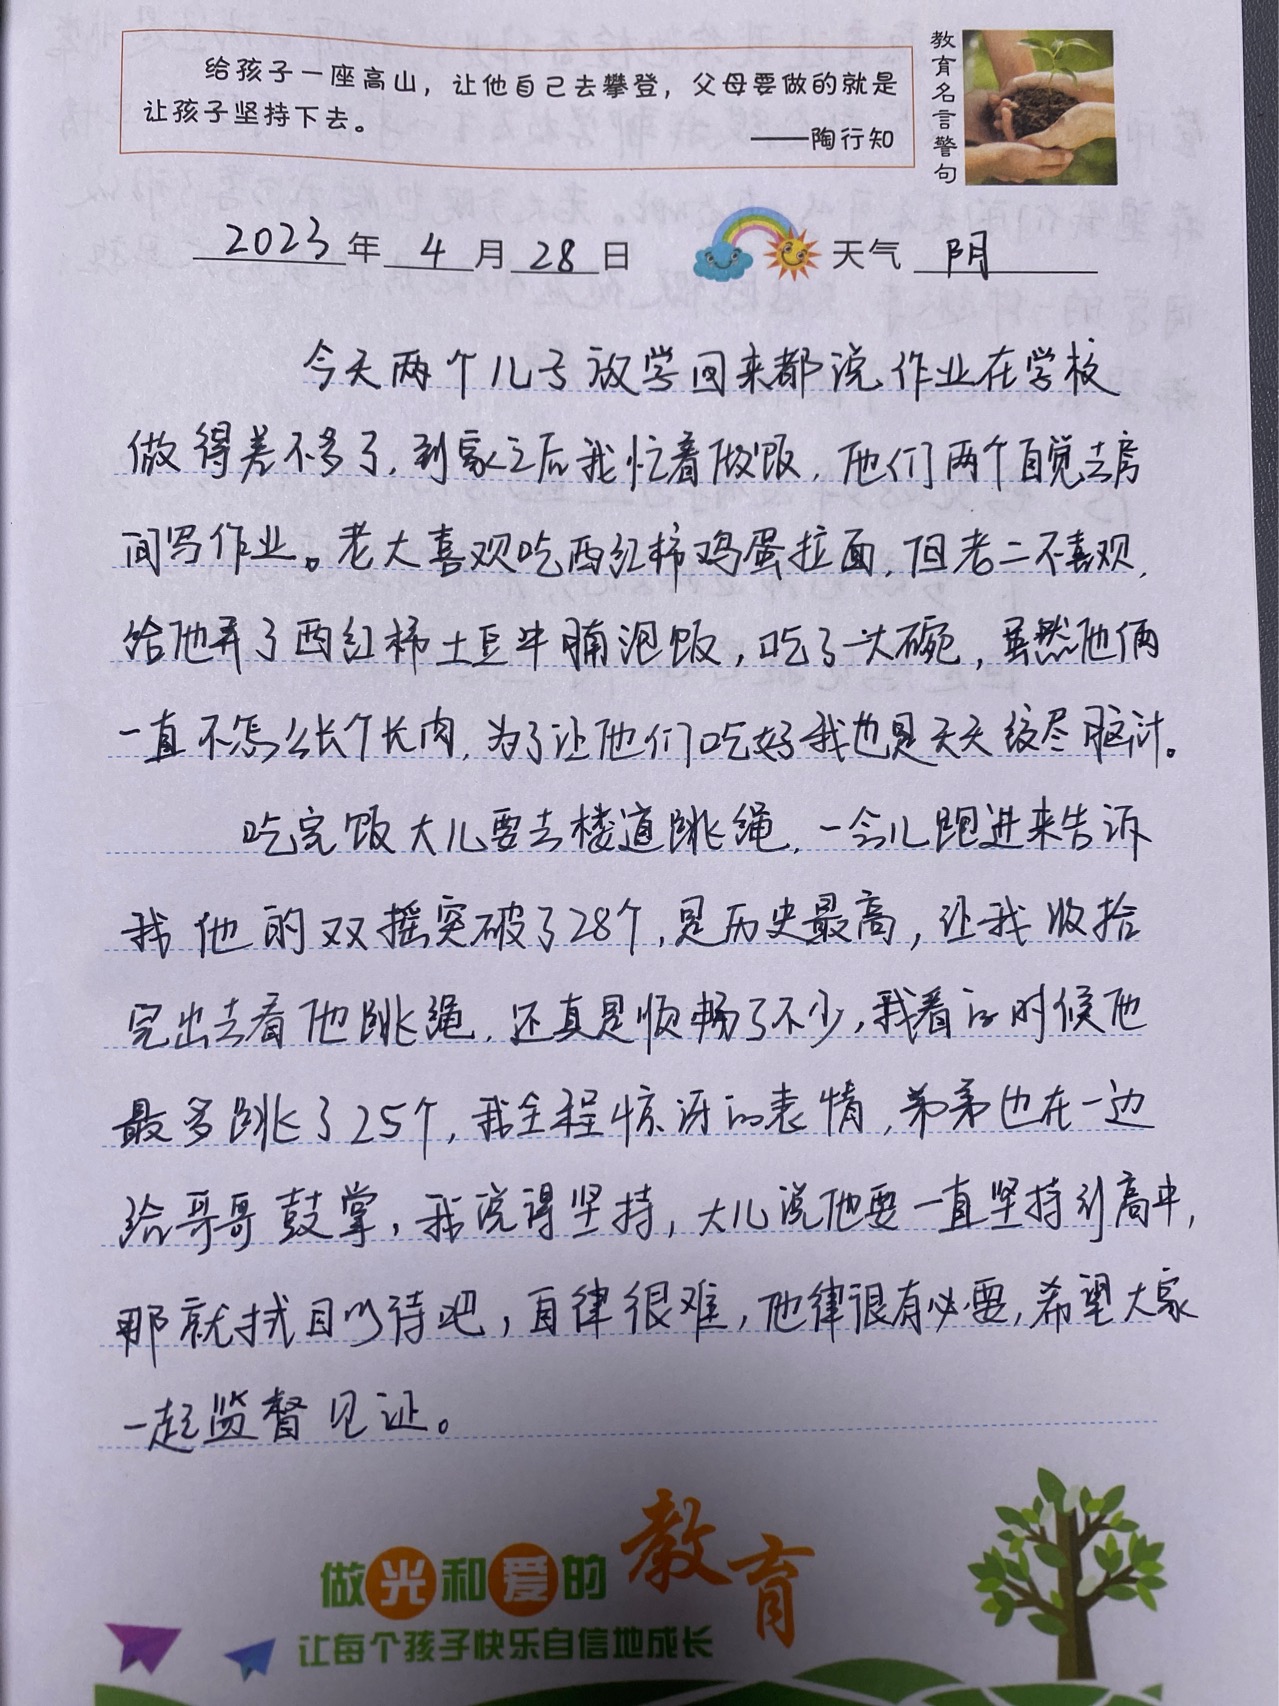 给孩子一座高山，让他自己去攀登，父母要做的就是
让孩子坚持下去。
——陶行知
教育名言警句
2023年4月28日 天气 阴
今天两个儿子放学回来都说作业在学校
做得差不多了，到家之后我忙着做饭，他们两个自觉去房
间写作业。老大喜欢吃西红柿鸡蛋拉面，但老二不喜欢，
给他弄了西红柿土豆牛腩泡饭，吃了一大碗，虽然他俩
一直不怎么长个长肉，为了让他们吃好我也是天天绞尽脑汁。
吃完饭大儿要去楼道跳绳，一会儿跑进来告诉
我他的双摇突破了28个，是历史最高，让我收拾
完出去看他跳绳，还真是顺畅了不少，我看的时候他
最多跳了25个，我全程惊讶的表情，弟弟也在一边
给哥哥鼓掌，我说得坚持，大儿说他要一直坚持到高中，
那就拭目以待吧，自律很难，他律很有必要，希望大家
一起监督见证。
做光和爱的教育
让每个孩子快乐自信地成长